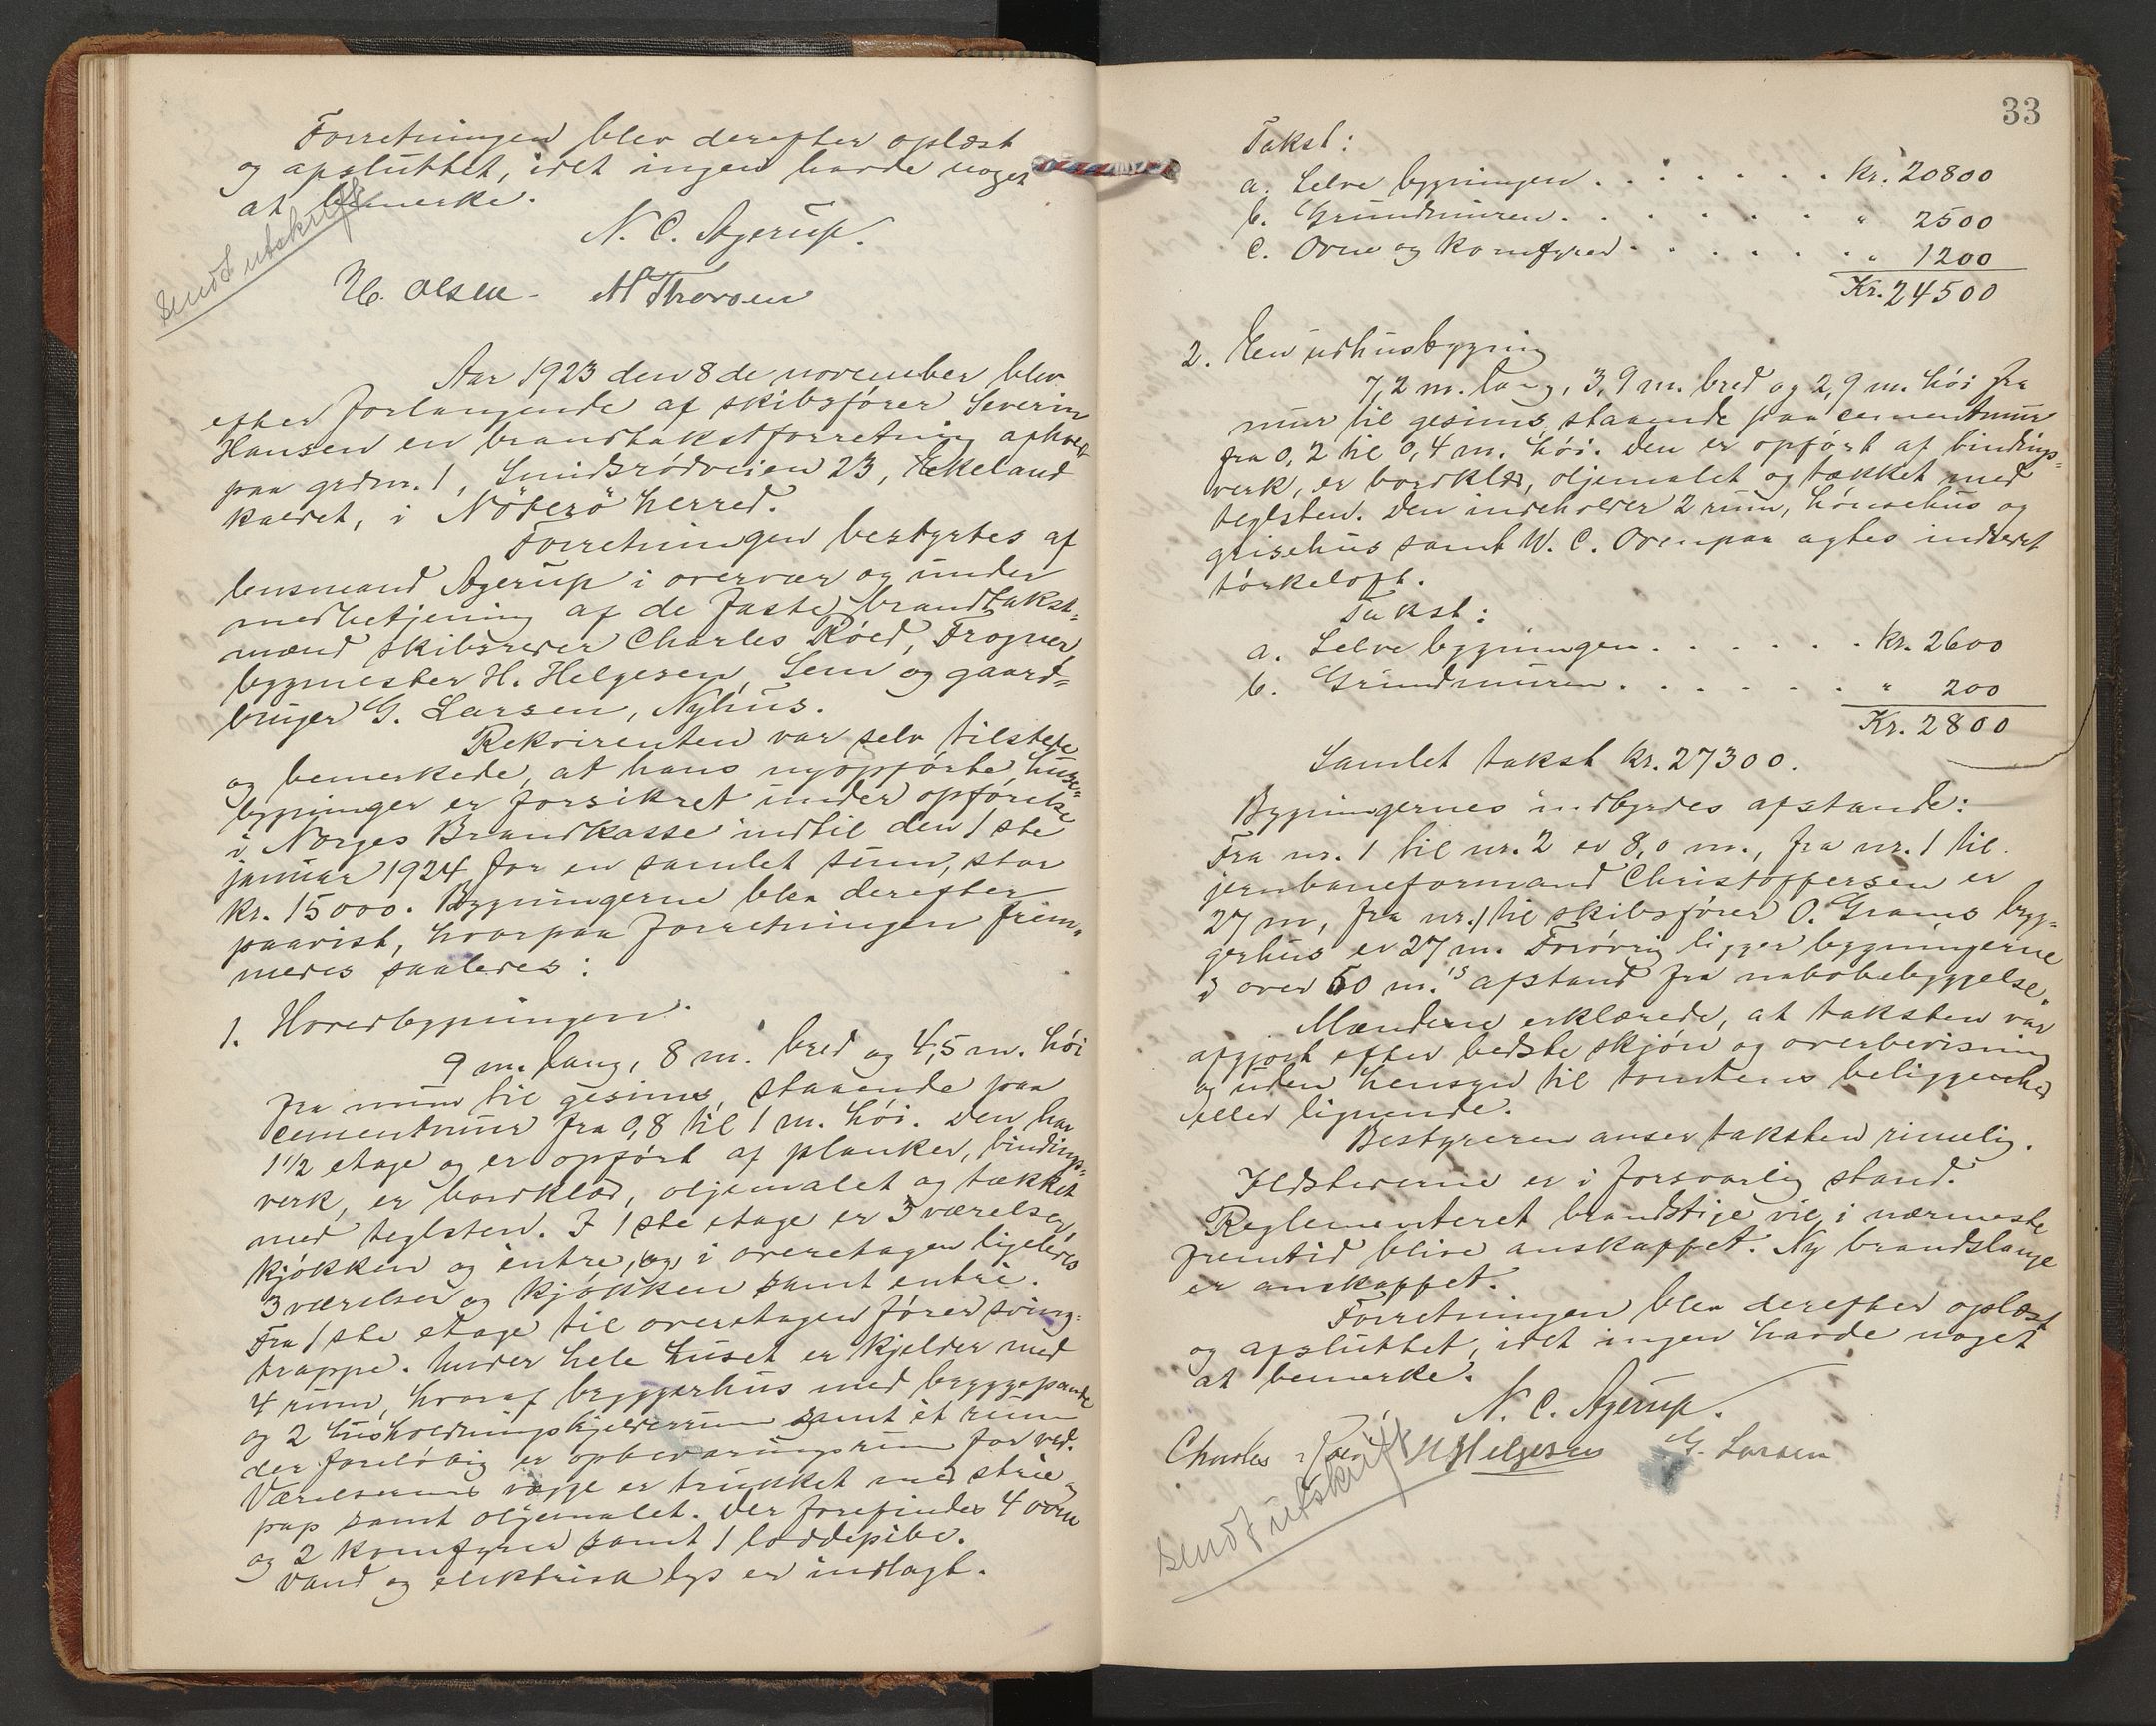 Forretningen blev derefter oplæst
og afsluttet, idet ingen havde noget
at bemerke.
Sendt utskrift
N. C. Agerup.
H. Olsen - A Thorsen
Aar 1923 den 8de november blev
efter forlangende af skibsfører Severin
Hansen en brandtakstforretning afholdt
paa grdnr. 1, Smidsrødveien 23, Ekeland
kaldet, i Nøterø herred.
Forretningen bestyrtes af
lensmand Agerup i overvær og under
medbetjening af de faste brandtakst-
mænd skibsreder Charles Røed, Trogner,
bygmester H. Helgesen, Sem og gaard-
bruger G. Larsen, Nyhus.
Rekvirenten var selv tilstede
og bemerkede, at hans nyopførte huse-
bygninger er forsikret under opførelse
i Norges Brandkasse indtil den 1ste
januar 1924 for en samlet sum, stor
kr. 15000. Bygningerne blev derefter
paavist, hvorpaa forretningen frem-
medes saaledes:
1. Hovedbygningen.
9 m. lang, 8 m. bred og 4,5 m. høi
fra mur til gesims, staaende paa
cementmur fra 0,8 til 1 m. høi. Den har
1 1/2 etage og er opført af planker, bindings-
verk, er bordklæd, oljemalet og tækket
med teglsten. I 1ste etage er 3 værelser,
kjøkken og entre, og i overetagen ligeledes
3 værelser og kjøkken samt entre.
Fra 1ste etage til overetagen fører sving-
trappe. Under hele huset er kjelder med
4 rum, hvoraf bryggerhus med bryggepande
og 2 husholdningskjelderrum samt et rum
der foreløbig er opbevaringsrum for ved.
Værelsernes vægge er trukket med strie,
pap samt oljemalet. Der forefindes 4 ovne
og 2 komfyrer samt 1 loddepibe.
Vand og elektrisk lys er indlagt.
33
Takst:
a. Selve bygningen . . . . . . . kr. 20800
b. Grundmuren . . . . . . . " 2500
c. Ovne og komfyrer . . . . . . " 1200
Kr. 24500
2. En udhusbygning
7,2 m. lang, 3,9 m. bred og 2,9 m. høi fra
mur til gesims, staaende paa cementmur
fra 0,2 til 0,4 m. høi. Den er opført af bindings-
verk, er bordklæd, oljemalet og tækket med
teglsten. Den indeholder 2 rum, hønsehus og
grisehus samt W. C. Ovenpaa agtes indredet
tørkeloft.
Takst:
a. Selve bygningen . . . . . . kr. 2600
b. Grundmuren . . . . . . " 200
Kr. 2800
Samlet takst kr. 27300.
Bygningernes indbyrdes afstande:
Fra nr. 1 til nr. 2 er 8,0 m., fra nr. 1 til
jernbaneformand Christoffersen er
27 m, fra nr. 1 til skibsfører O. Grams bryg-
gerhus er 27 m. Forøvrig ligger bygningerne
i over 50 m.'s afstand fra nabobebyggelse.
Mændene erklærede, at taksten var
afgjort efter bedste skjøn og overbevisning
og uden hensyn til tomtens beliggenhed
eller lignende.
Bestyreren anser taksten rimelig.
Ildstederne er i forsvarlig stand.
Reglementeret brandstige vil i nærmeste
fremtid blive anskaffet. Ny brandslange
er anskaffet.
Forretningen blev derefter oplæst
og afsluttet, idet ingen havde noget
at bemerke.
N. C. Agerup.
Charles Røed H Helgesen G. Larsen
Sendt utskrift